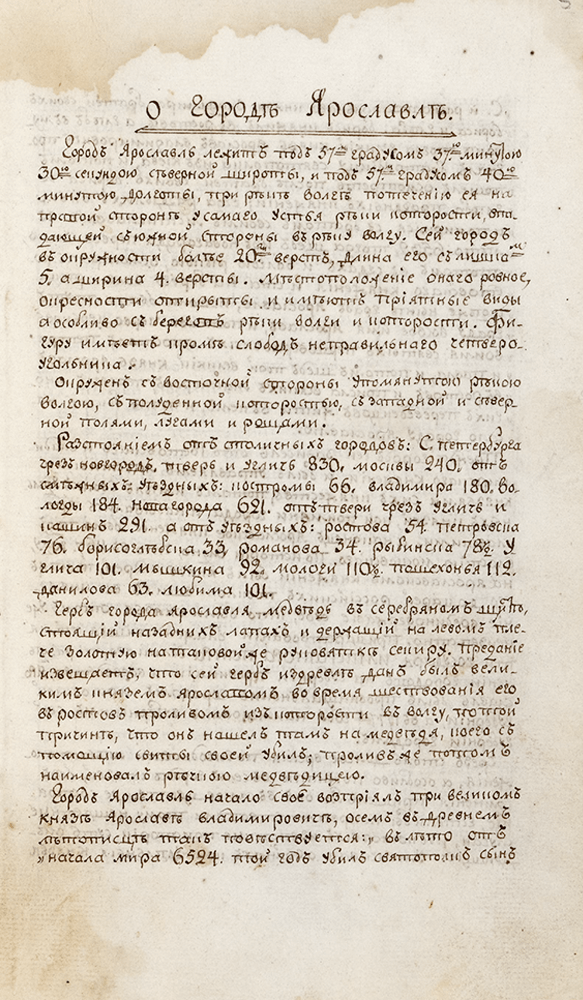 О ГОРОДѢ ЯРОСЛАВЛѢ.
Городъ Ярославль лежитъ подъ 57мъ градусомъ 37ю минутою
30ю секундою сѣверной широты, и подъ 57мъ градусомъ 40ю
минутою долготы, при рѣкѣ Волгѣ по теченію ея на
правой сторонѣ у самаго устья рѣки которости, впа-
дающей съ южной стороны въ рѣку волгу. Сей городъ
въ окружности болѣе 20ти верстъ, длина его съ лишкомъ
5. а ширина 4. версты. Мѣстоположеніе онаго ровное,
окресности открыты и имѣютъ пріятные виды
а особливо съ береговъ рѣки волги и которости. Фи-
гуру имѣетъ кромѣ слободъ неправильнаго четверо-
угольника.
Окруженъ съ восточной стороны упомянутою рѣкою
волгою, съ полуденной которостью, съ западной и сѣвер
ной полями, лугами и рощами.
Разстояніемъ отъ столичныхъ городовъ: С. петербурга
чрезъ новгородъ, тверь и угличь 830. москвы 240. отъ
смѣжныхъ уѣздныхъ: костромы 66. владимира 180. Во-
логды 184. новагорода 621. отъ твери чрезъ угличь и
кашинъ 291. а отъ уѣздныхъ: ростова 54. петровска
76. борисоглѣбска 33, романова 34. рыбинска 78½. У
глича 101. мышкина 92. мологи 110½. пошехонья 112.
данилова 63. любима 101.
Гербъ города ярославля медвѣдь въ серебряномъ щитѣ,
стоящій на заднихъ лапахъ и держащій на левомъ пле-
че золотую на таковой же рукояткѣ секиру. Преданіе
извещаетъ, что сей гербъ издревлѣ данъ былъ вели-
кимъ княземъ ярославомъ во время шествованія его
въ ростовъ проливомъ изъ которости въ волгу, по той
причинѣ, что онъ нашелъ тамъ на медведя, коего съ
помощію свиты своей убилъ; проливъ же потомъ
наименовалъ рѣчкою медведицею.
Городъ Ярославль начало свое возпріялъ при великомъ
князѣ Ярославѣ владимировичѣ, о семъ въ древнемъ
лѣтописцѣ такъ повѣствуется: „ въ лѣто отъ
„ начала мира 6524. той годъ убилъ святополкъ сынъ